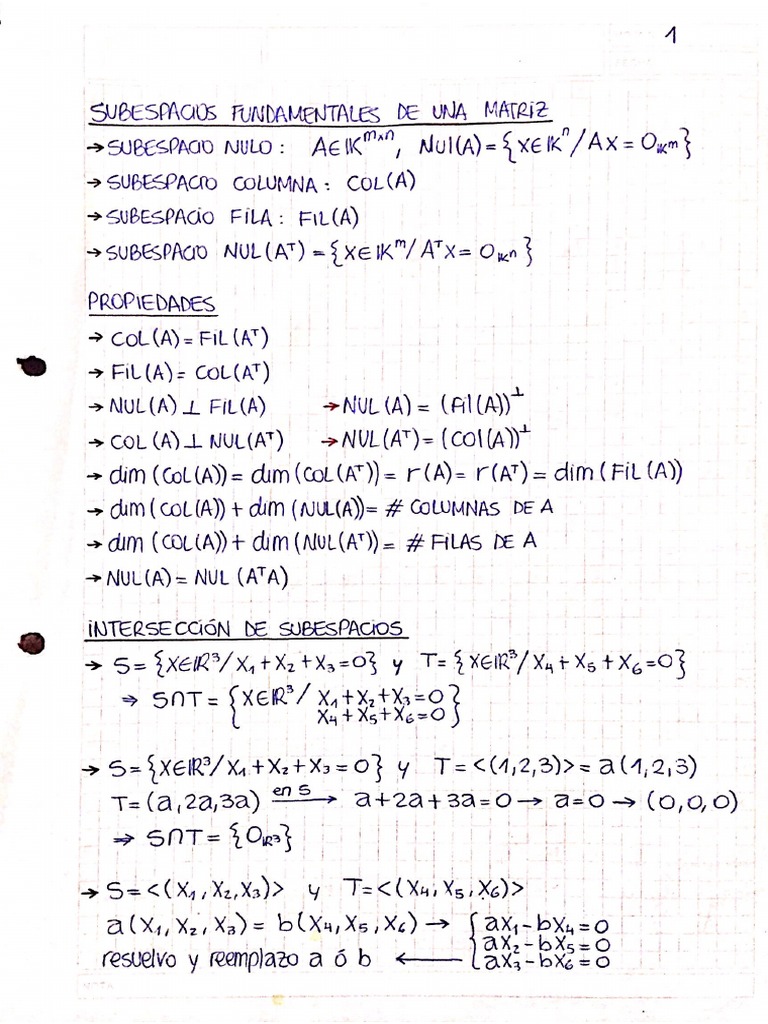 1
SUBESPACIOS FUNDAMENTALES DE UNA MATRIZ
→ SUBESPACIO NULO: A∈𝕂ᵐˣⁿ, Nul(A)={X∈𝕂ⁿ/AX=0𝕂ᵐ}
→ SUBESPACIO COLUMNA: COL(A)
→ SUBESPACIO FILA: FIL(A)
→ SUBESPACIO NUL(Aᵀ)={X∈𝕂ᵐ/AᵀX=0𝕂ⁿ}
PROPIEDADES
→ COL(A)=FIL(Aᵀ)
→ FIL(A)=COL(Aᵀ)
→ NUL(A)⊥FIL(A) → NUL(A)=(Fil(A))⊥
→ COL(A)⊥NUL(Aᵀ) → NUL(Aᵀ)=(COl(A))⊥
→ dim(COL(A))=dim(COL(Aᵀ))=r(A)=r(Aᵀ)=dim(FIL(A))
→ dim(COL(A))+dim(NUL(A))=# COLUMNAS DE A
→ dim(COL(A))+dim(NUL(Aᵀ))=# FILAS DE A
→ NUL(A)=NUL(AᵀA)
INTERSECCIÓN DE SUBESPACIOS
→ S={X∈ℝ³/X₁+X₂+X₃=0} y T={X∈ℝ³/X₄+X₅+X₆=0}
⇒ S∩T={X∈ℝ³/ X₁+X₂+X₃=0
X₄+X₅+X₆=0}
→ S={X∈ℝ³/X₁+X₂+X₃=0} y T=<(1,2,3)>=a(1,2,3)
T=(a,2a,3a) en S → a+2a+3a=0 → a=0 → (0,0,0)
⇒ S∩T={0ℝ³}
→ S=<(X₁,X₂,X₃)> y T=<(X₄,X₅,X₆)>
a(X₁,X₂,X₃)=b(X₄,X₅,X₆) → {aX₁-bX₄=0
aX₂-bX₅=0
resuelvo y reemplazo a ó b ← aX₃-bX₆=0